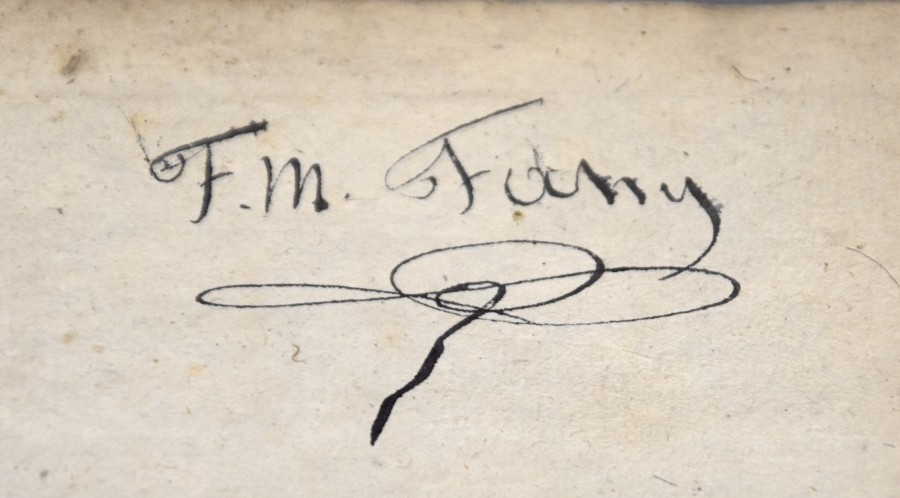 F. M. Fany